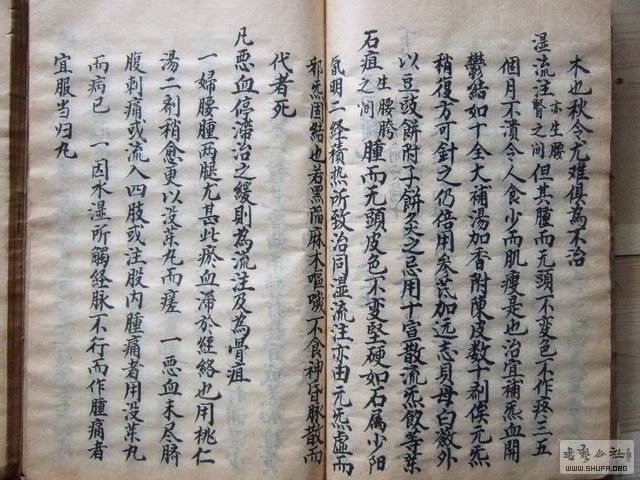 木也秋令尤难俱為不治
湿流注亦生腰腎之間但其腫而无頭不变色不作疼三五
個月不潰令人食少而肌瘦是也治宜補炁血開
鬱結如十全大補湯加香附陳皮数十剤俟元炁
稍復方可針之仍倍用参芪加远志貝母白蘞外
以豆豉餅附子餅灸之忌用十宣散流炁飲等藥
石疽生腰胯之间腫而无頭皮色不变堅硬如石属少阳
阳明二经積热所致治同湿流注亦由元炁虛而
邪炁固結也若黑陷麻木嘔噦不食神昏脉散而
代者死
凡惡血停滞治之緩則為流注及為骨疽
一婦腰腫两腿尤甚此瘀血滞於經絡也用桃仁
湯二剤稍愈更以没藥丸而瘥 一惡血未尽臍
腹刺痛或流入四肢或注股内腫痛者用没藥丸
而病已 一因水湿所觸经脉不行而作腫痛者
宜服当归丸
WWW.SHUFA.ORG